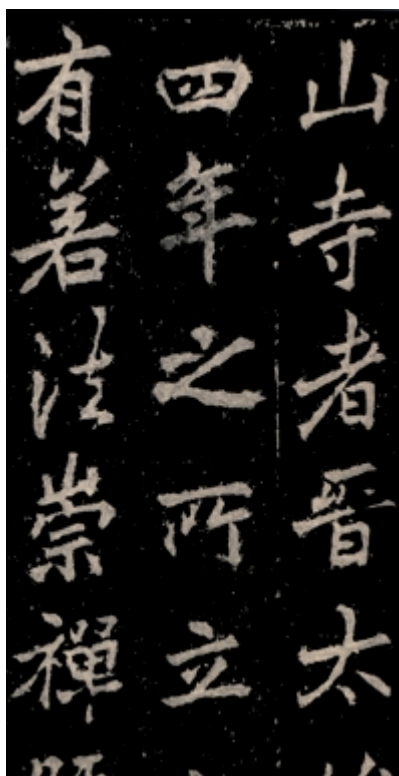 山寺者晉太
四年之所立
有若法崇禪